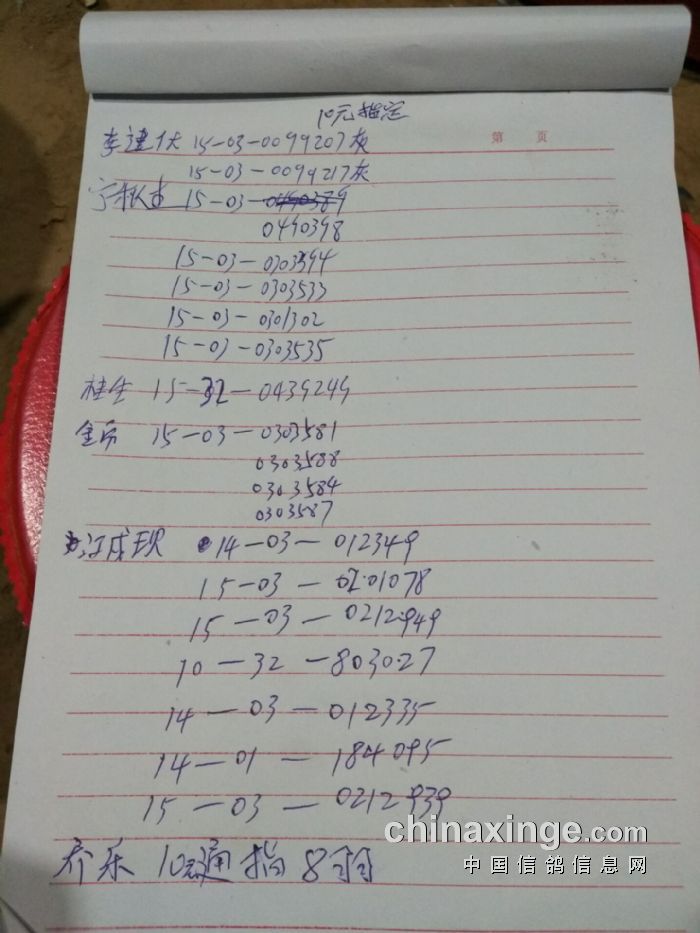 10元指定
第 页
李建伏 15-03-0099207灰
15-03-0099217灰
15-03-0490389
0490398
15-03-0303594
15-03-0303533
15-03-0301302
15-03-0303535
桂生 15-32-0439249
金币 15-03-0303581
0303588
0303584
0303587
14-03-012349
15-03-0201078
15-03-0212949
10-32-803027
14-03-012335
14-01-184095
15-03-0212939
乔乐 10元通指8羽
chinaxinge.com
中国信鸽信息网